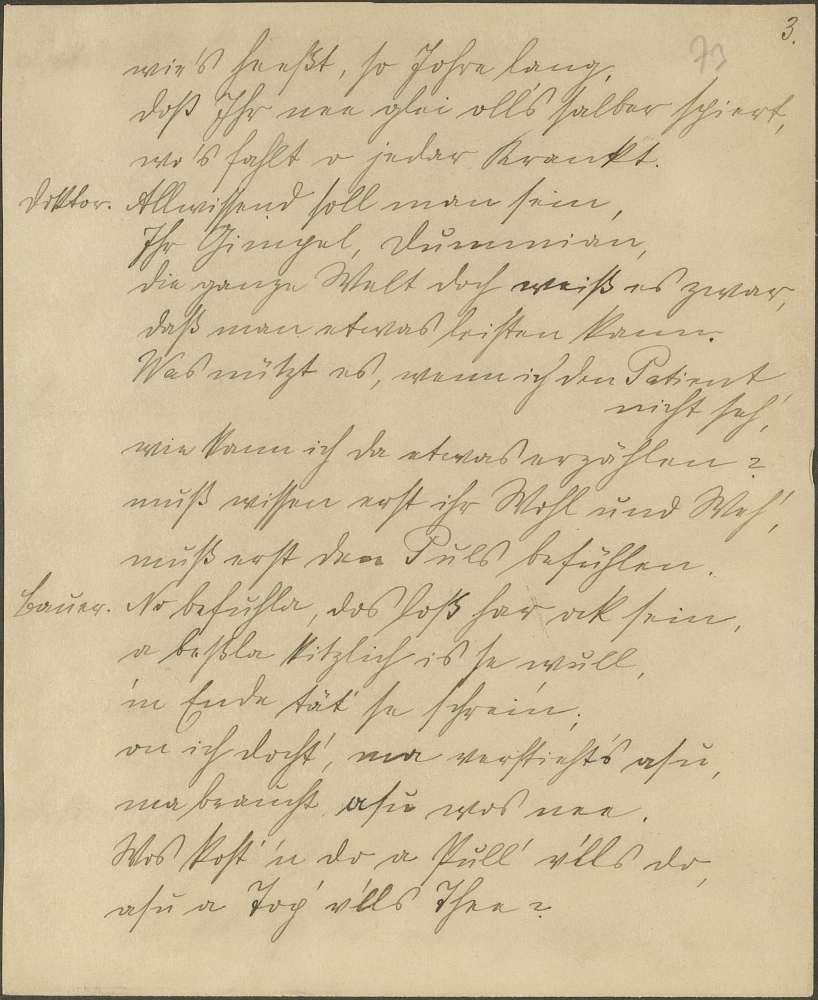 3.
73
wie's heeßt, so Johre lang,
doß Ihr nee glei oll's salber spiert,
wo's fahlt o jedar Krankt.
Doktor. Allwissend soll man sein,
Ihr Gimpel, Dummian,
die ganze Welt doch weiß es zwar,
daß man etwas leisten kann.
Was nützt es, wenn ich den Patient
nicht seh',
wie kann ich da etwas erzählen?
muß wissen erst ihr Wohl und Weh',
muß erst den Puls befühlen.
Bauer. No befuhla, dos loß har ock sein,
a beßla kitzlich is se wull,
'm Ende tät' se schrein,
on ich docht', ma verstieht's asu,
ma braucht asu wos nee.
Wos kost' 'n do a Pull' vlls do,
asu a Top' vlls Thee?